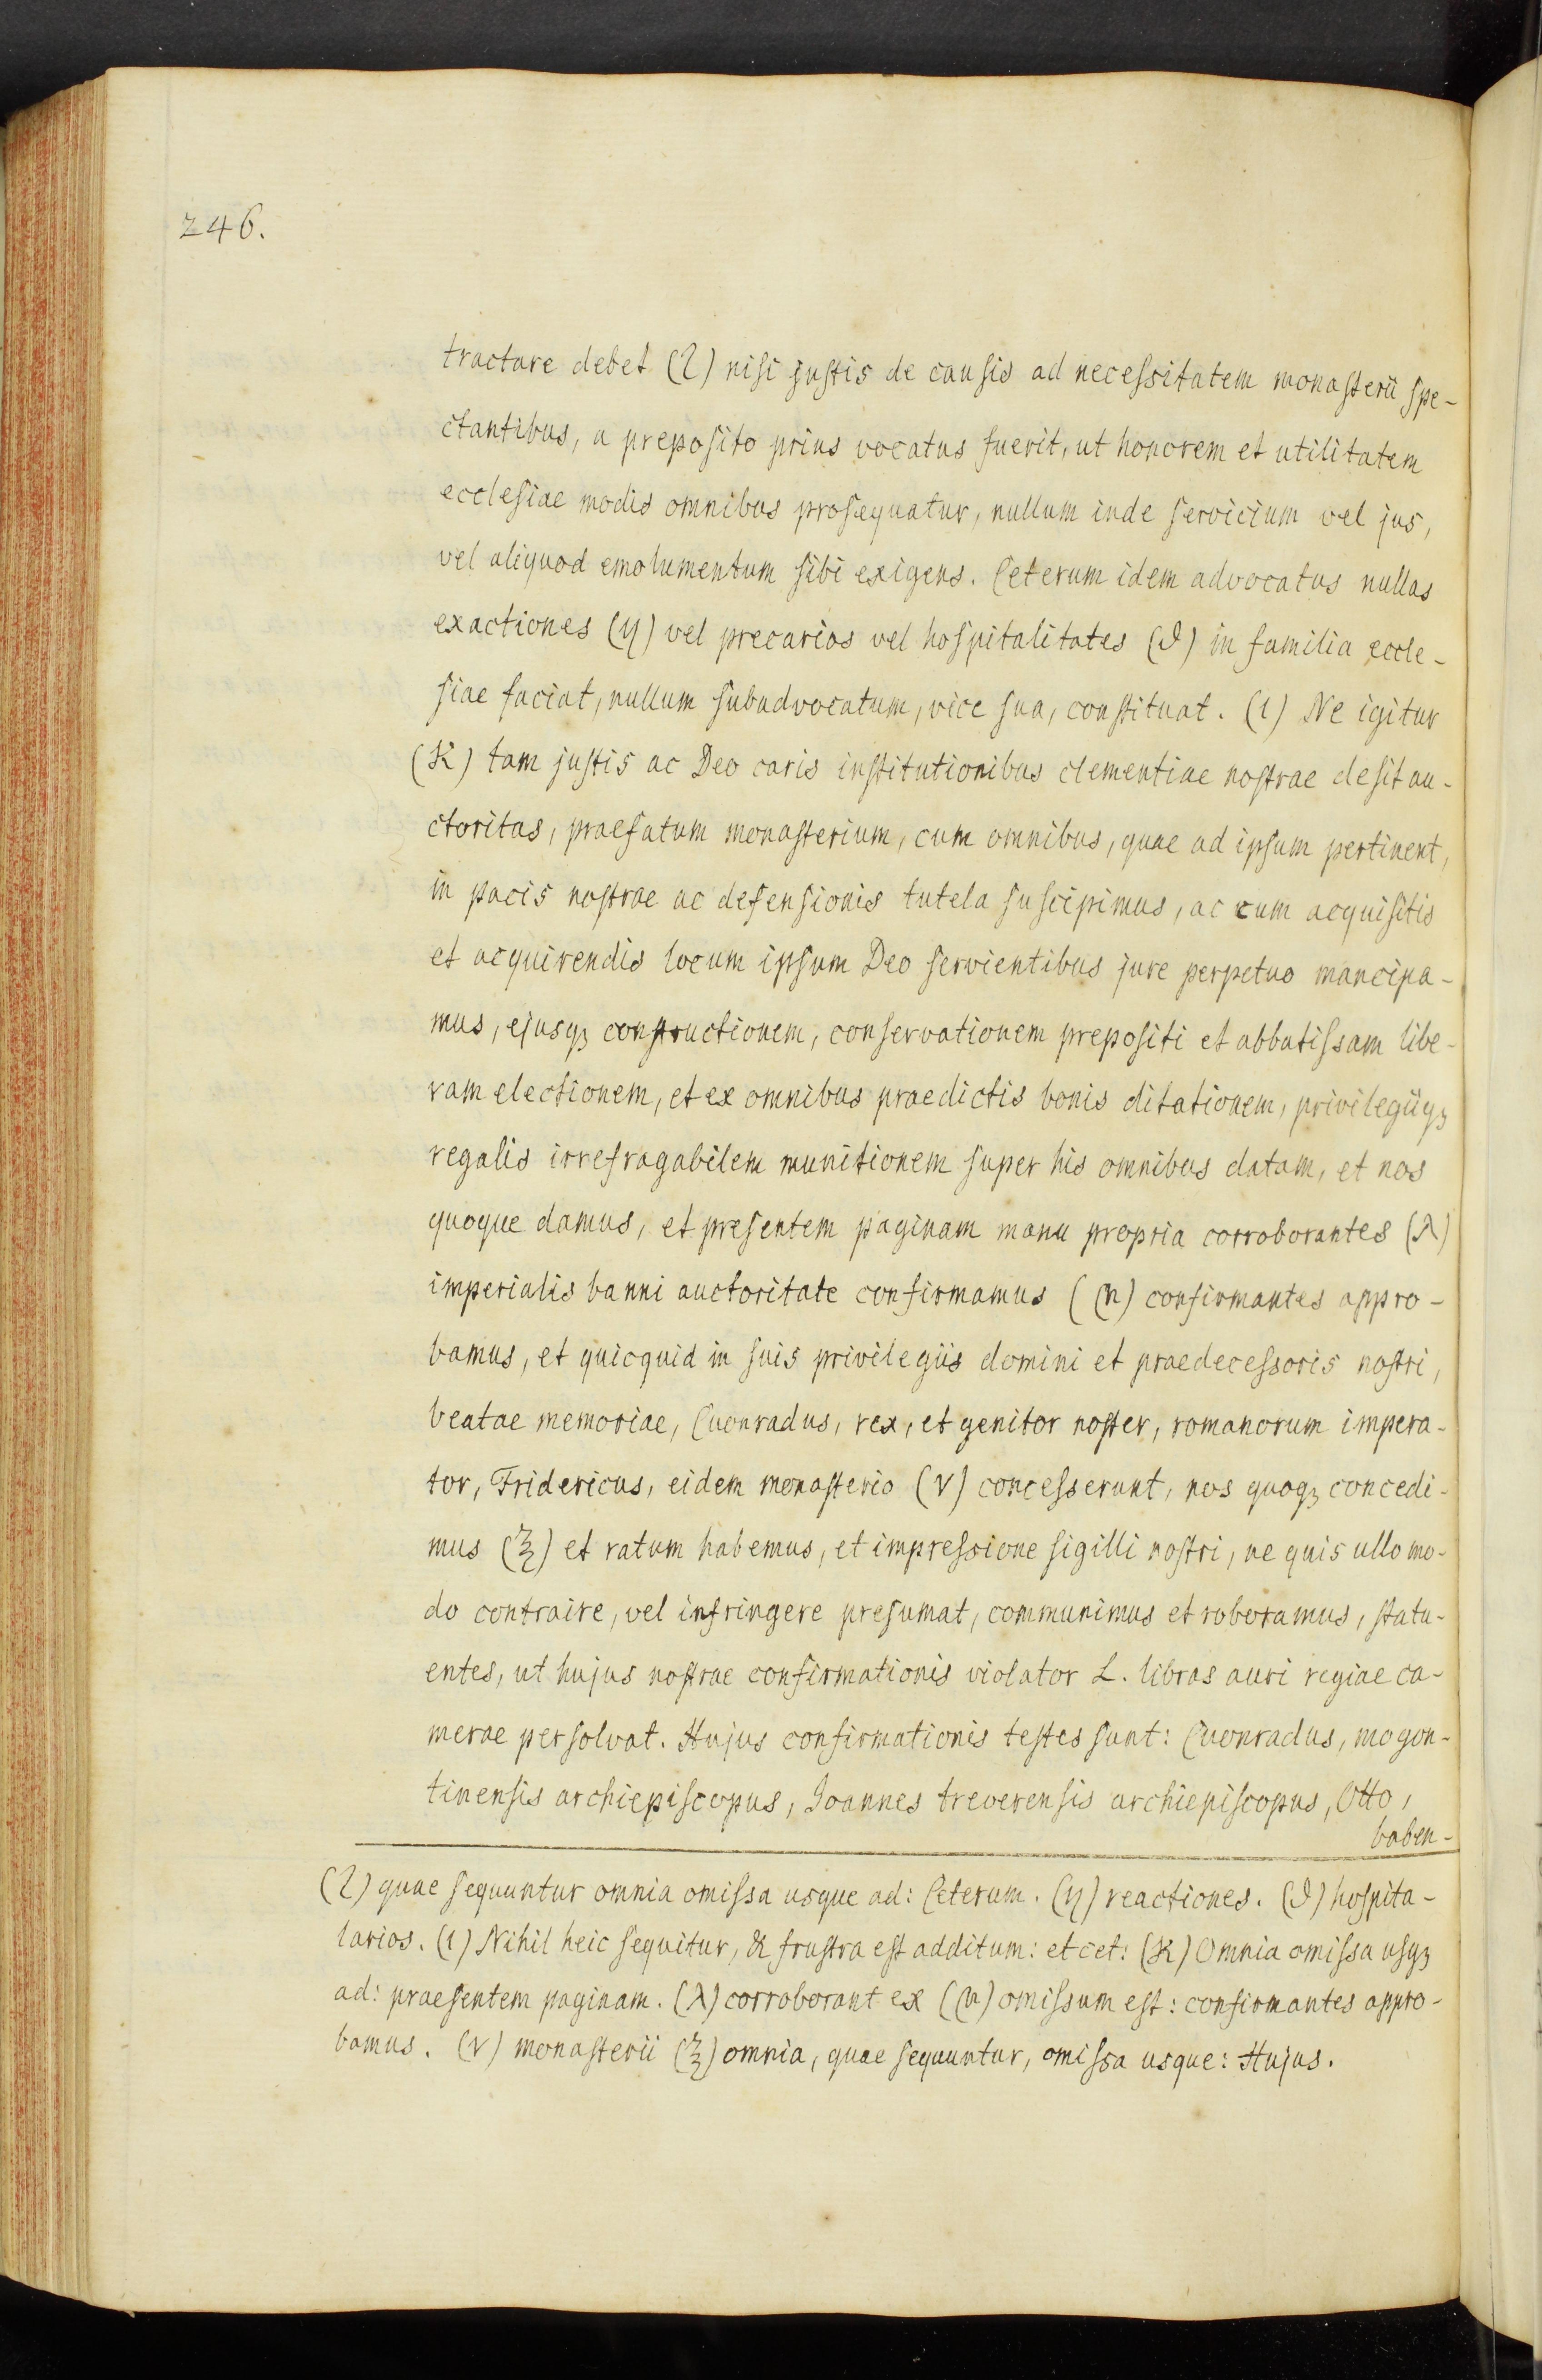 246.
tractare debet (ζ) nisi justis de causis ad necessitatem monasterii spe-
ctantibus, a preposito prius vocatus fuerit, ut honorem et utilitatem
ecclesiae modis omnibus prosequatur, nullum inde servicium vel jus,
vel aliquod emolumentum sibi exigens. Ceterum idem advocatus nullas
exactiones (η) vel precarias vel hospitalitates (ϑ) in familia eccle-
siae faciat, nullum subadvocatum, vice sua, constituat. (ι) Ne igitur
(K) tam justis ac Deo caris institutionibus clementiae nostrae desit au-
ctoritas, praefatum monasterium, cum omnibus, quae ad ipsum pertinent,
in pacis nostrae ac defensionis tutela suscipimus, ac cum acquisitis
et acquirendis locum ipsum Deo servientibus jure perpetuo mancipa-
mus, ejusqꝫ constructionem, conservationem prepositi et abbatissam libe-
ram electionem, et ex omnibus praedictis bonis ditationem, privilegiiqꝫ
regalis irrefragabilem munitionem super his omnibus datam, et nos
quoque damus, et presentem paginam manu propria corroborantes (λ)
imperialis banni auctoritate confirmamus (μ) confirmantes appro-
bamus, et quicquid in suis privilegiis domini et praedecessoris nostri,
beatae memoriae, Cuonradus, rex, et genitor noster, romanorum impera-
tor, Fridericus, eidem monasterio (ν) concesserunt, nos quoqꝫ concedi-
mus (ξ) et ratum habemus, et impressione sigilli nostri, ne quis ullo mo-
do contraire, vel infringere presumat, communimus et roboramus, statu-
entes, ut hujus nostrae confirmationis violator L. libras auri regiae ca-
merae persolvat. Hujus confirmationis testes sunt: Cuonradus, mogon-
tinensis archiepiscopus, Joannes treverensis archiepiscopus, Otto,
baben-
(ζ) quae sequuntur omnia omissa usque ad: Ceterum. (η) reactiones. (ϑ) hospita-
larios. (ι) Nihil heic sequitur, & frustra est additum: et cet: (K) Omnia omissa usqꝫ
ad: praesentem paginam. (λ) corroborant ex (μ) omissum est: confirmantes appro-
bamus. (ν) monasterii (ξ) omnia, quae sequuntur, omissa usque: Hujus.